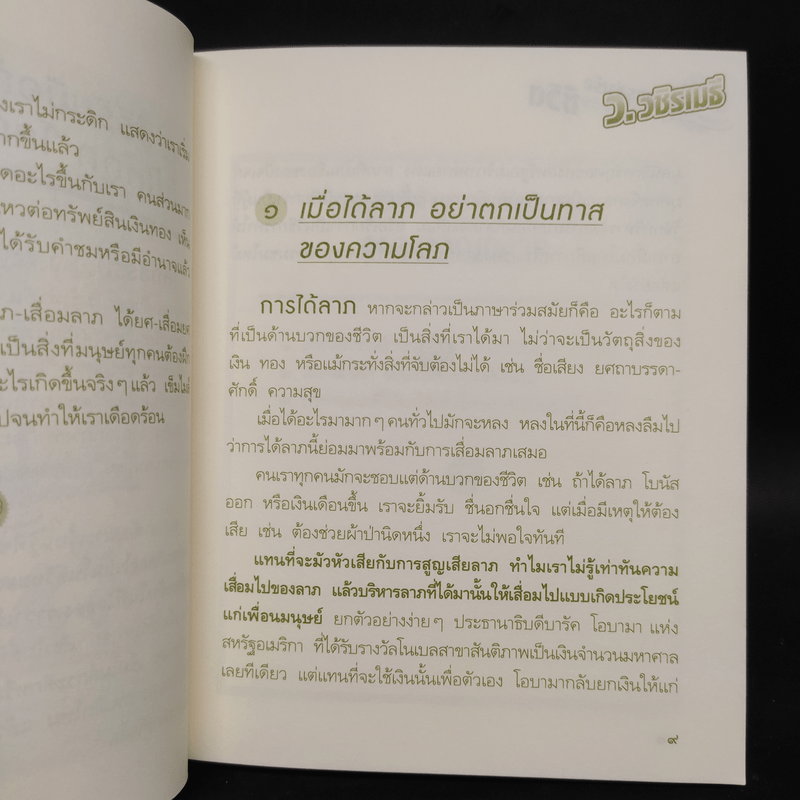 งเราไม่กระดิก แสดงว่าเราเริ่ม
ากขึ้นแล้ว
ดอะไรขึ้นกับเรา คนส่วนมาก
หวต่อทรัพย์สินเงินทอง เห็น
ได้รับคำชมหรือมีอำนาจแล้ว
ภ-เสื่อมลาภ ได้ยศ-เสื่อมยศ
เป็นสิ่งที่มนุษย์ทุกคนต้องฝึก
ะไรเกิดขึ้นจริงๆ แล้ว เข็มไมล์
ปจนทำให้เราเดือดร้อน
ว.วชิรเมธี
๑ เมื่อได้ลาภ อย่าตกเป็นทาส
ของความโลภ
การได้ลาภ หากจะกล่าวเป็นภาษาร่วมสมัยก็คือ อะไรก็ตาม
ที่เป็นด้านบวกของชีวิต เป็นสิ่งที่เราได้มา ไม่ว่าจะเป็นวัตถุสิ่งของ
เงิน ทอง หรือแม้กระทั่งสิ่งที่จับต้องไม่ได้ เช่น ชื่อเสียง ยศถาบรรดา-
ศักดิ์ ความสุข
เมื่อได้อะไรมามากๆ คนทั่วไปมักจะหลง หลงในที่นี้ก็คือหลงลืมไป
ว่าการได้ลาภนี้ย่อมมาพร้อมกับการเสื่อมลาภเสมอ
คนเราทุกคนมักจะชอบแต่ด้านบวกของชีวิต เช่น ถ้าได้ลาภ โบนัส
ออก หรือเงินเดือนขึ้น เราจะยิ้มรับ ชื่นอกชื่นใจ แต่เมื่อมีเหตุให้ต้อง
เสีย เช่น ต้องช่วยผ้าป่านิดหนึ่ง เราจะไม่พอใจทันที
แทนที่จะมัวหัวเสียกับการสูญเสียลาภ ทำไมเราไม่รู้เท่าทันความ
เสื่อมไปของลาภ แล้วบริหารลาภที่ได้มานั้นให้เสื่อมไปแบบเกิดประโยชน์
แก่เพื่อนมนุษย์ ยกตัวอย่างง่ายๆ ประธานาธิบดีบารัค โอบามา แห่ง
สหรัฐอเมริกา ที่ได้รับรางวัลโนเบลสาขาสันติภาพเป็นเงินจำนวนมหาศาล
เลยทีเดียว แต่แทนที่จะใช้เงินนั้นเพื่อตัวเอง โอบามากลับยกเงินให้แก่
๙